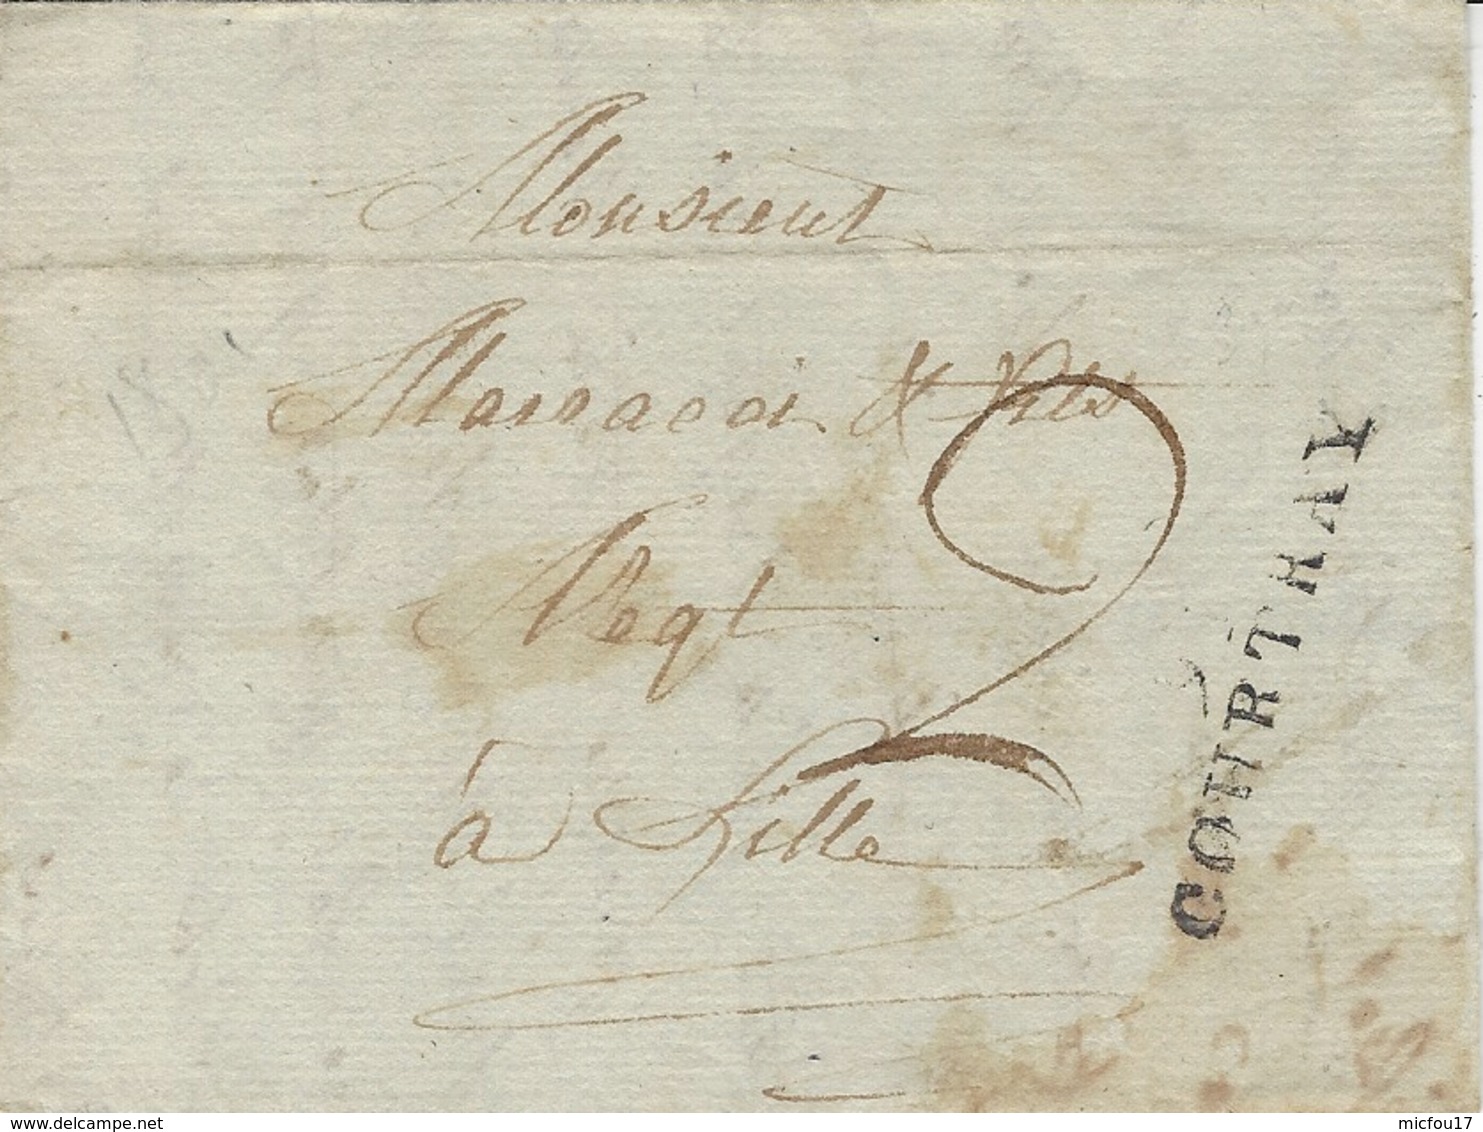 Monsieur
& Fils
Negt
à Lille
2
COURTRAY
18
delcampe.net
micfou17